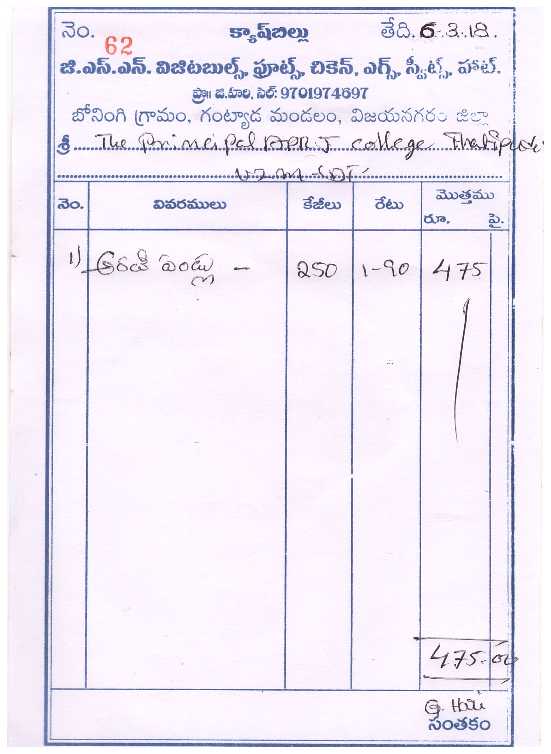 నెం. 62 క్యాష్‌బిల్లు తేది. 6.3.18.
జి.ఎస్.ఎన్. విజిటబుల్స్, ఫ్రూట్స్, చికెన్, ఎగ్స్, స్వీట్స్, హాట్.
ప్రొ॥ జి.హరి, సెల్: 9701974697
బోనింగి గ్రామం, గంట్యాడ మండలం, విజయనగరం జిల్లా
శ్రీ The Principal APR J. College Thatipudi
VZM-DT
నెం. వివరములు కేజీలు రేటు మొత్తము
రూ. పై.
1) అరటి పండ్లు - 250 1-90 475
475-00
G. Hari
సంతకం